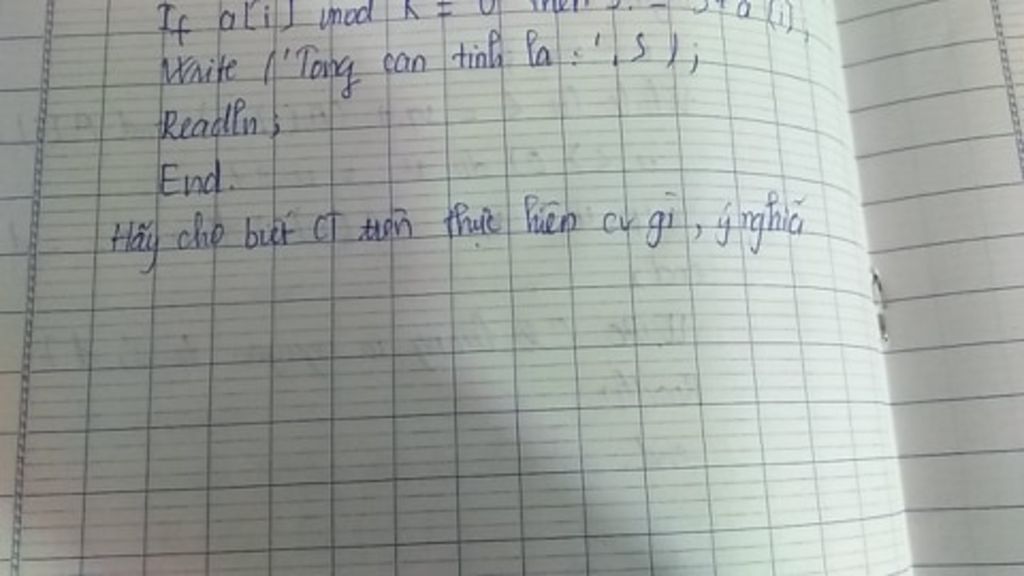 If a[i] mod k = 0 then S := S + a[i];
Write ('Tong can tinh la : ', S );
Readln;
End.
Hãy cho biết CT trên thực hiện cv gì, ý nghĩa